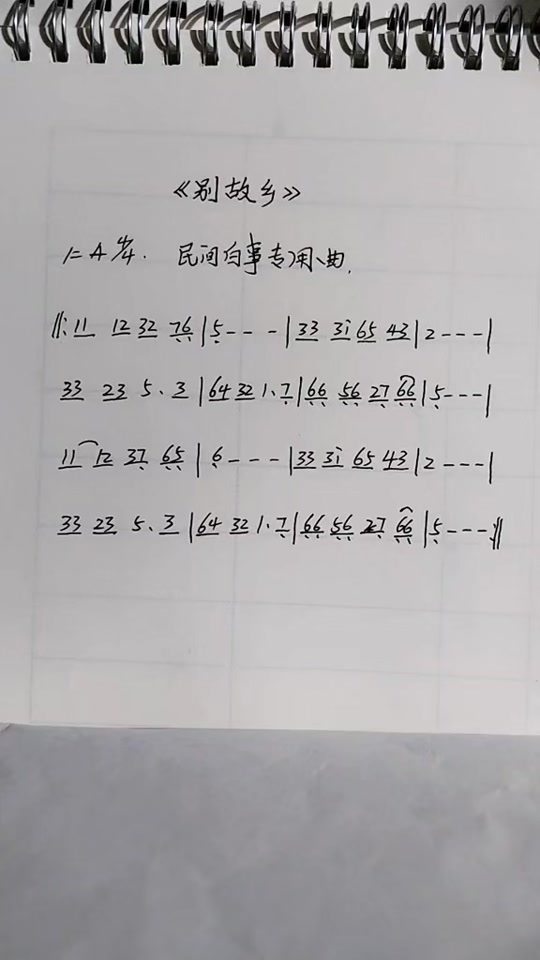 《别故乡》
1=A 4/4. 民间白事专用曲.
‖: 11 12 32 76 | 5 - - - | 33 31 65 43 | 2 - - - |
33 23 5. 3 | 64 32 1. 7 | 66 56 27 66 | 5 - - - |
11 12 37 65 | 6 - - - | 33 31 65 43 | 2 - - - |
33 23 5. 3 | 64 32 1. 7 | 66 56 27 66 | 5 - - - :‖